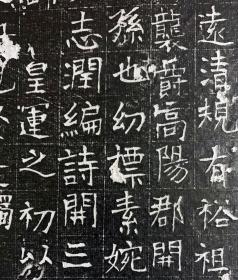 遠清規有裕祖
襲爵高陽郡開
孫也幼標素婉
志潤編詩開三
皇運之初以